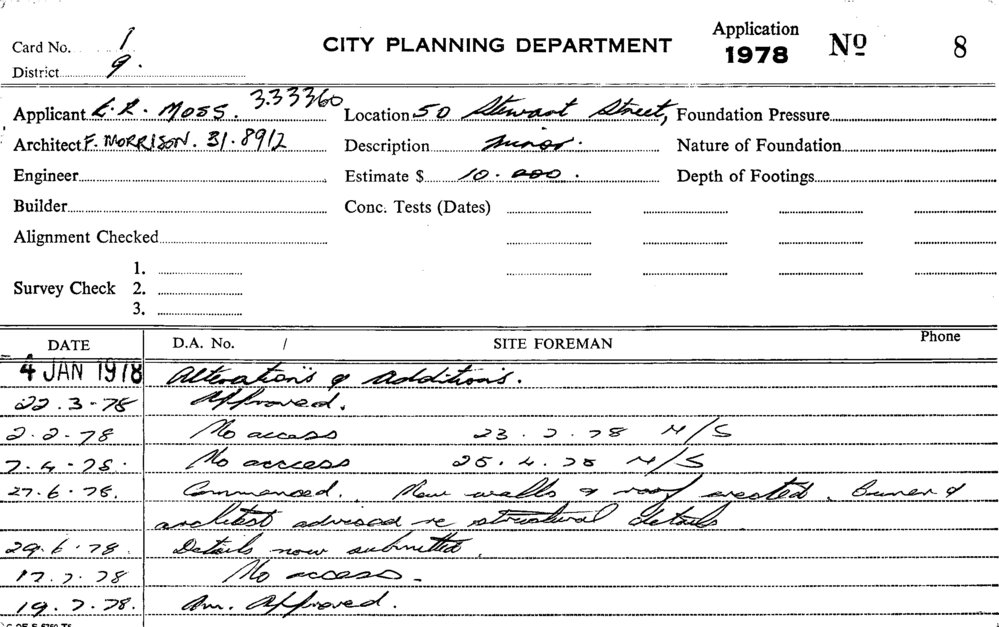 Card No. 1
CITY PLANNING DEPARTMENT
Application
1978 No 8
District 9.
Applicant E. R. MOSS. 333360 Location 50 Stewart Street, Foundation Pressure
Architect F. MORRISON. 31.8912 Description minor. Nature of Foundation
Engineer Estimate $ 10.000. Depth of Footings
Builder Conc. Tests (Dates)
Alignment Checked
1.
Survey Check 2.
3.
DATE D.A. No. / SITE FOREMAN Phone
4 JAN 1978 Alterations & Additions.
22.3.78 Approved.
2.2.78 No access 23.2.78 N/S
7.4.78. No access 25.4.78 N/S
27.6.78. Commenced. New walls & roof erected. Owner &
architect advised re structural details
29.6.78. Details now submitted.
17.7.78 No access.
19.7.78. Am. Approved.